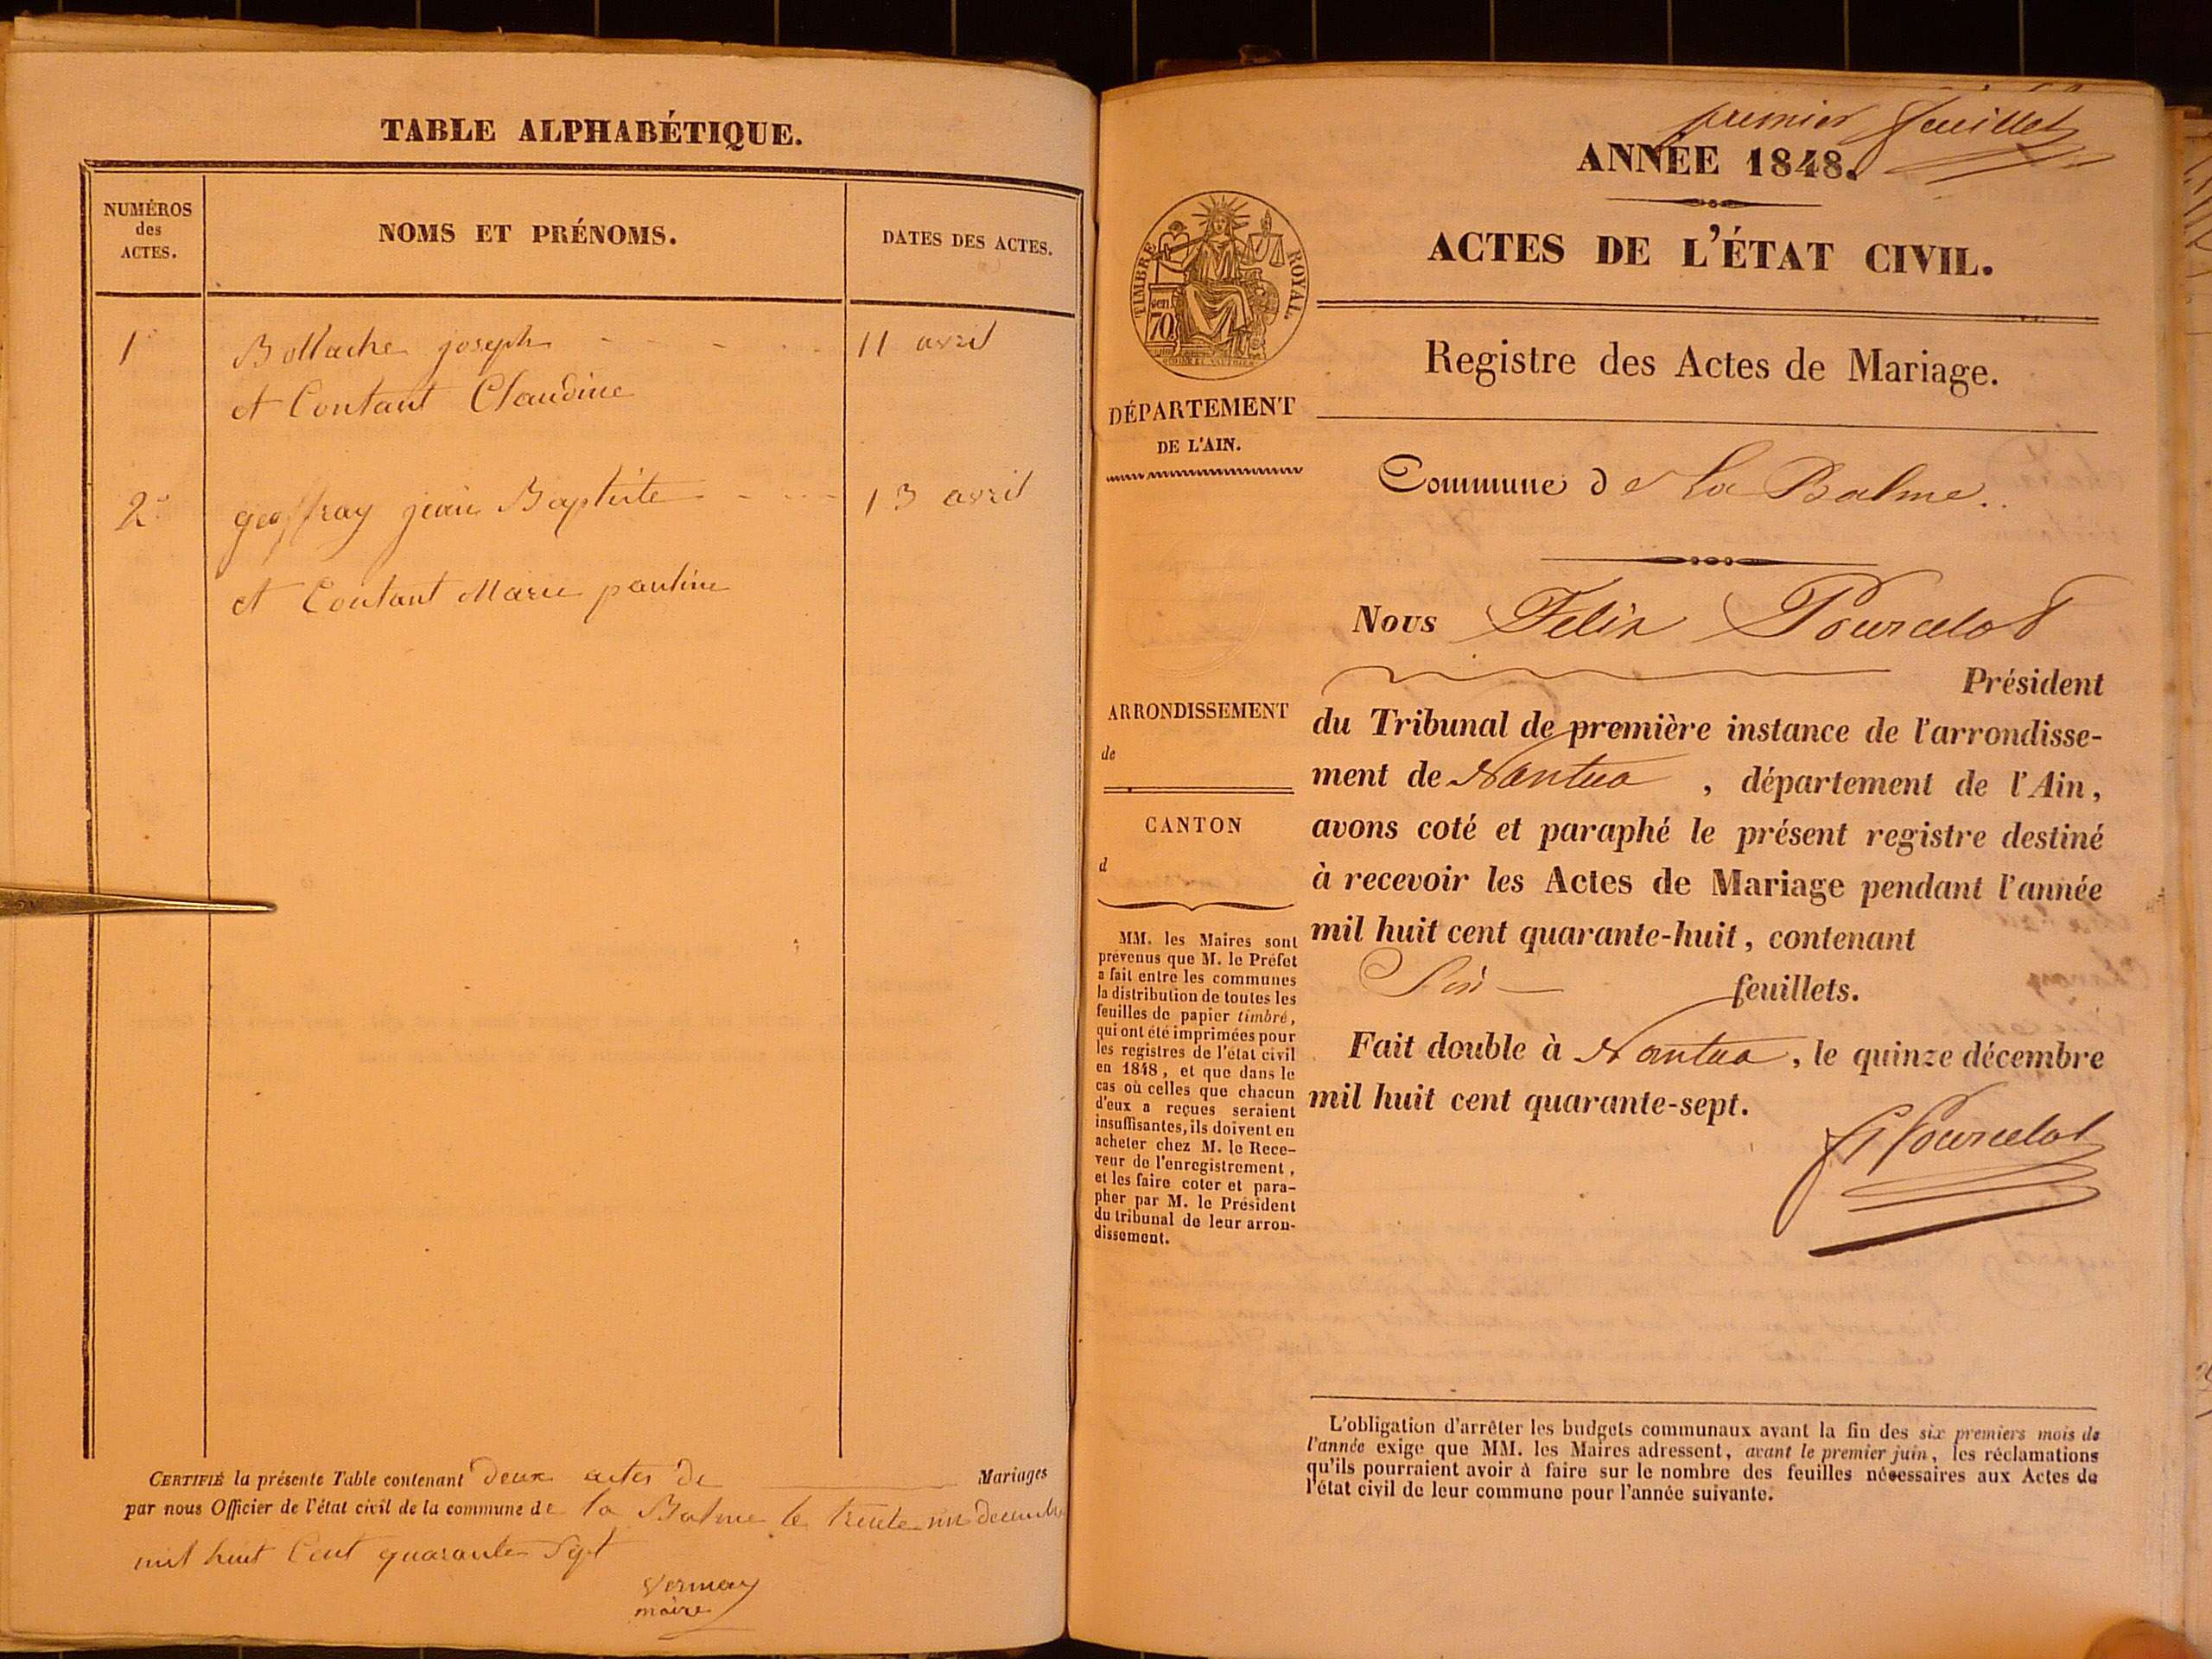 TABLE ALPHABÉTIQUE.
NUMÉROS
des
ACTES.
NOMS ET PRÉNOMS.
DATES DES ACTES.
1° Bollache joseph 11 avril
et Contant Claudine
2° geoffray jean Baptiste 13 avril
et Contant Marie pauline
CERTIFIÉ la présente Table contenant deux actes de Mariages
par nous Officier de l'état civil de la commune de la Balme le trente un decembre
mil huit Cent quarante Sept
Vermay
maire
premier feuillet
ANNÉE 1848.
ACTES DE L'ÉTAT CIVIL.
TIMBRE ROYAL.
cen
70
Registre des Actes de Mariage.
DÉPARTEMENT
DE L'AIN.
Commune de La Balme.
Nous Felix Pourcelot
Président
ARRONDISSEMENT
de
CANTON
d
du Tribunal de première instance de l'arrondisse-
ment de Nantua, département de l'Ain,
avons coté et paraphé le présent registre destiné
à recevoir les Actes de Mariage pendant l'année
mil huit cent quarante-huit, contenant
Six feuillets.
Fait double à Nantua, le quinze décembre
mil huit cent quarante-sept.
F Pourcelot
MM. les Maires sont
prévenus que M. le Préfet
a fait entre les communes
la distribution de toutes les
feuilles de papier timbré,
qui ont été imprimées pour
les registres de l'état civil
en 1848, et que dans le
cas où celles que chacun
d'eux a reçues seraient
insuffisantes, ils doivent en
acheter chez M. le Rece-
veur de l'enregistrement,
et les faire coter et para-
pher par M. le Président
du tribunal de leur arron-
dissement.
L'obligation d'arrêter les budgets communaux avant la fin des six premiers mois de
l'année exige que MM. les Maires adressent, avant le premier juin, les réclamations
qu'ils pourraient avoir à faire sur le nombre des feuilles nécessaires aux Actes de
l'état civil de leur commune pour l'année suivante.